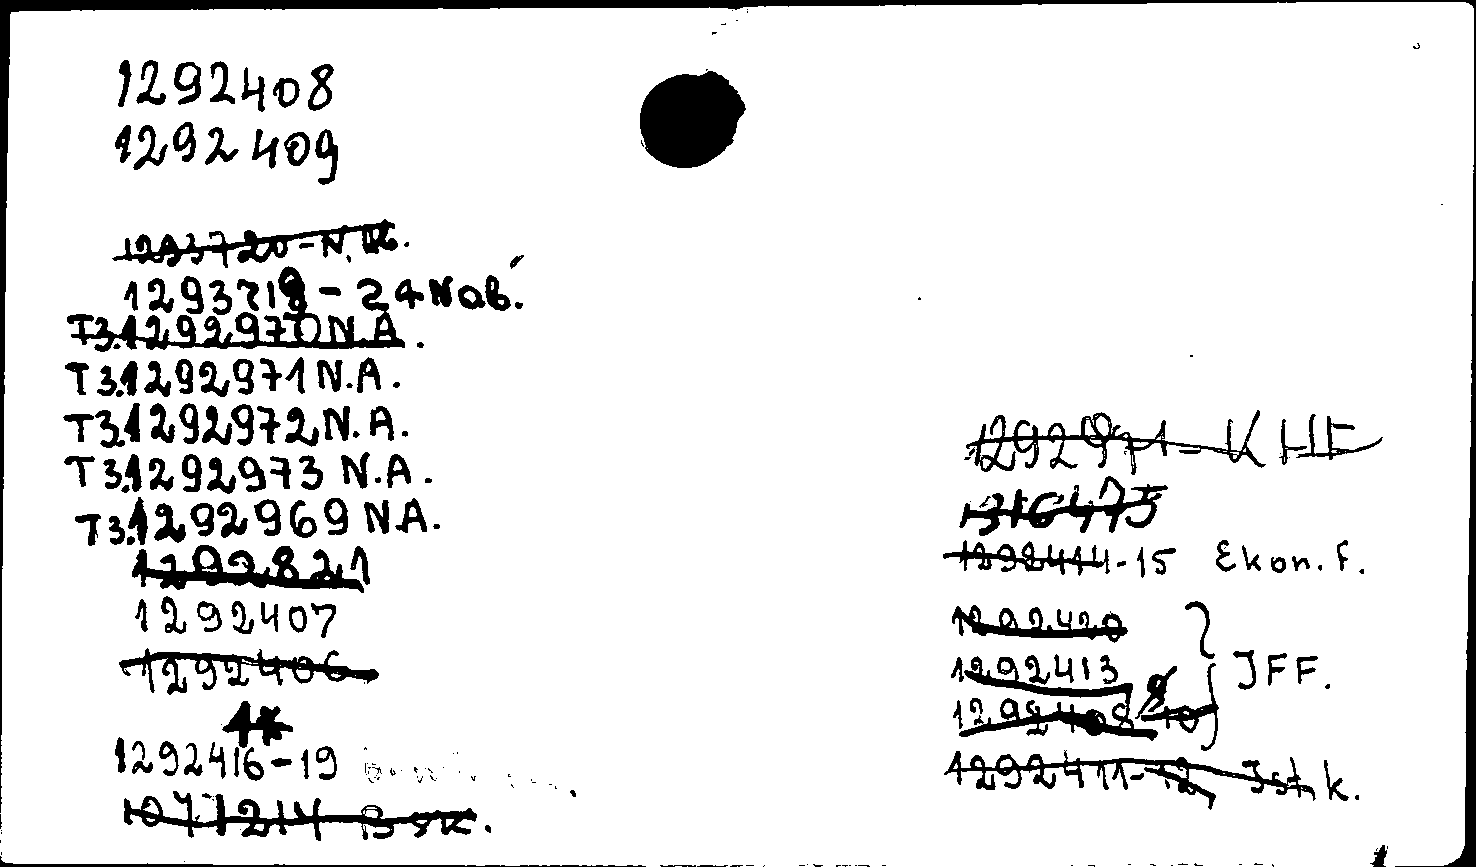 1292408
1292409
1293720-N.
1293718 - 24 Nob.
T3.1292970 N.A.
T3.1292971 N.A.
T3.1292972 N.A.
T3.1292973 N.A.
T3.1292969 N.A.
1292821
1292407
1292406
1292416-19
1077214
1292971-KHF
1316475
1292414-15 Ekon. F.
1292420
1292413 JFF.
1292408
1292411-12 Jst. k.